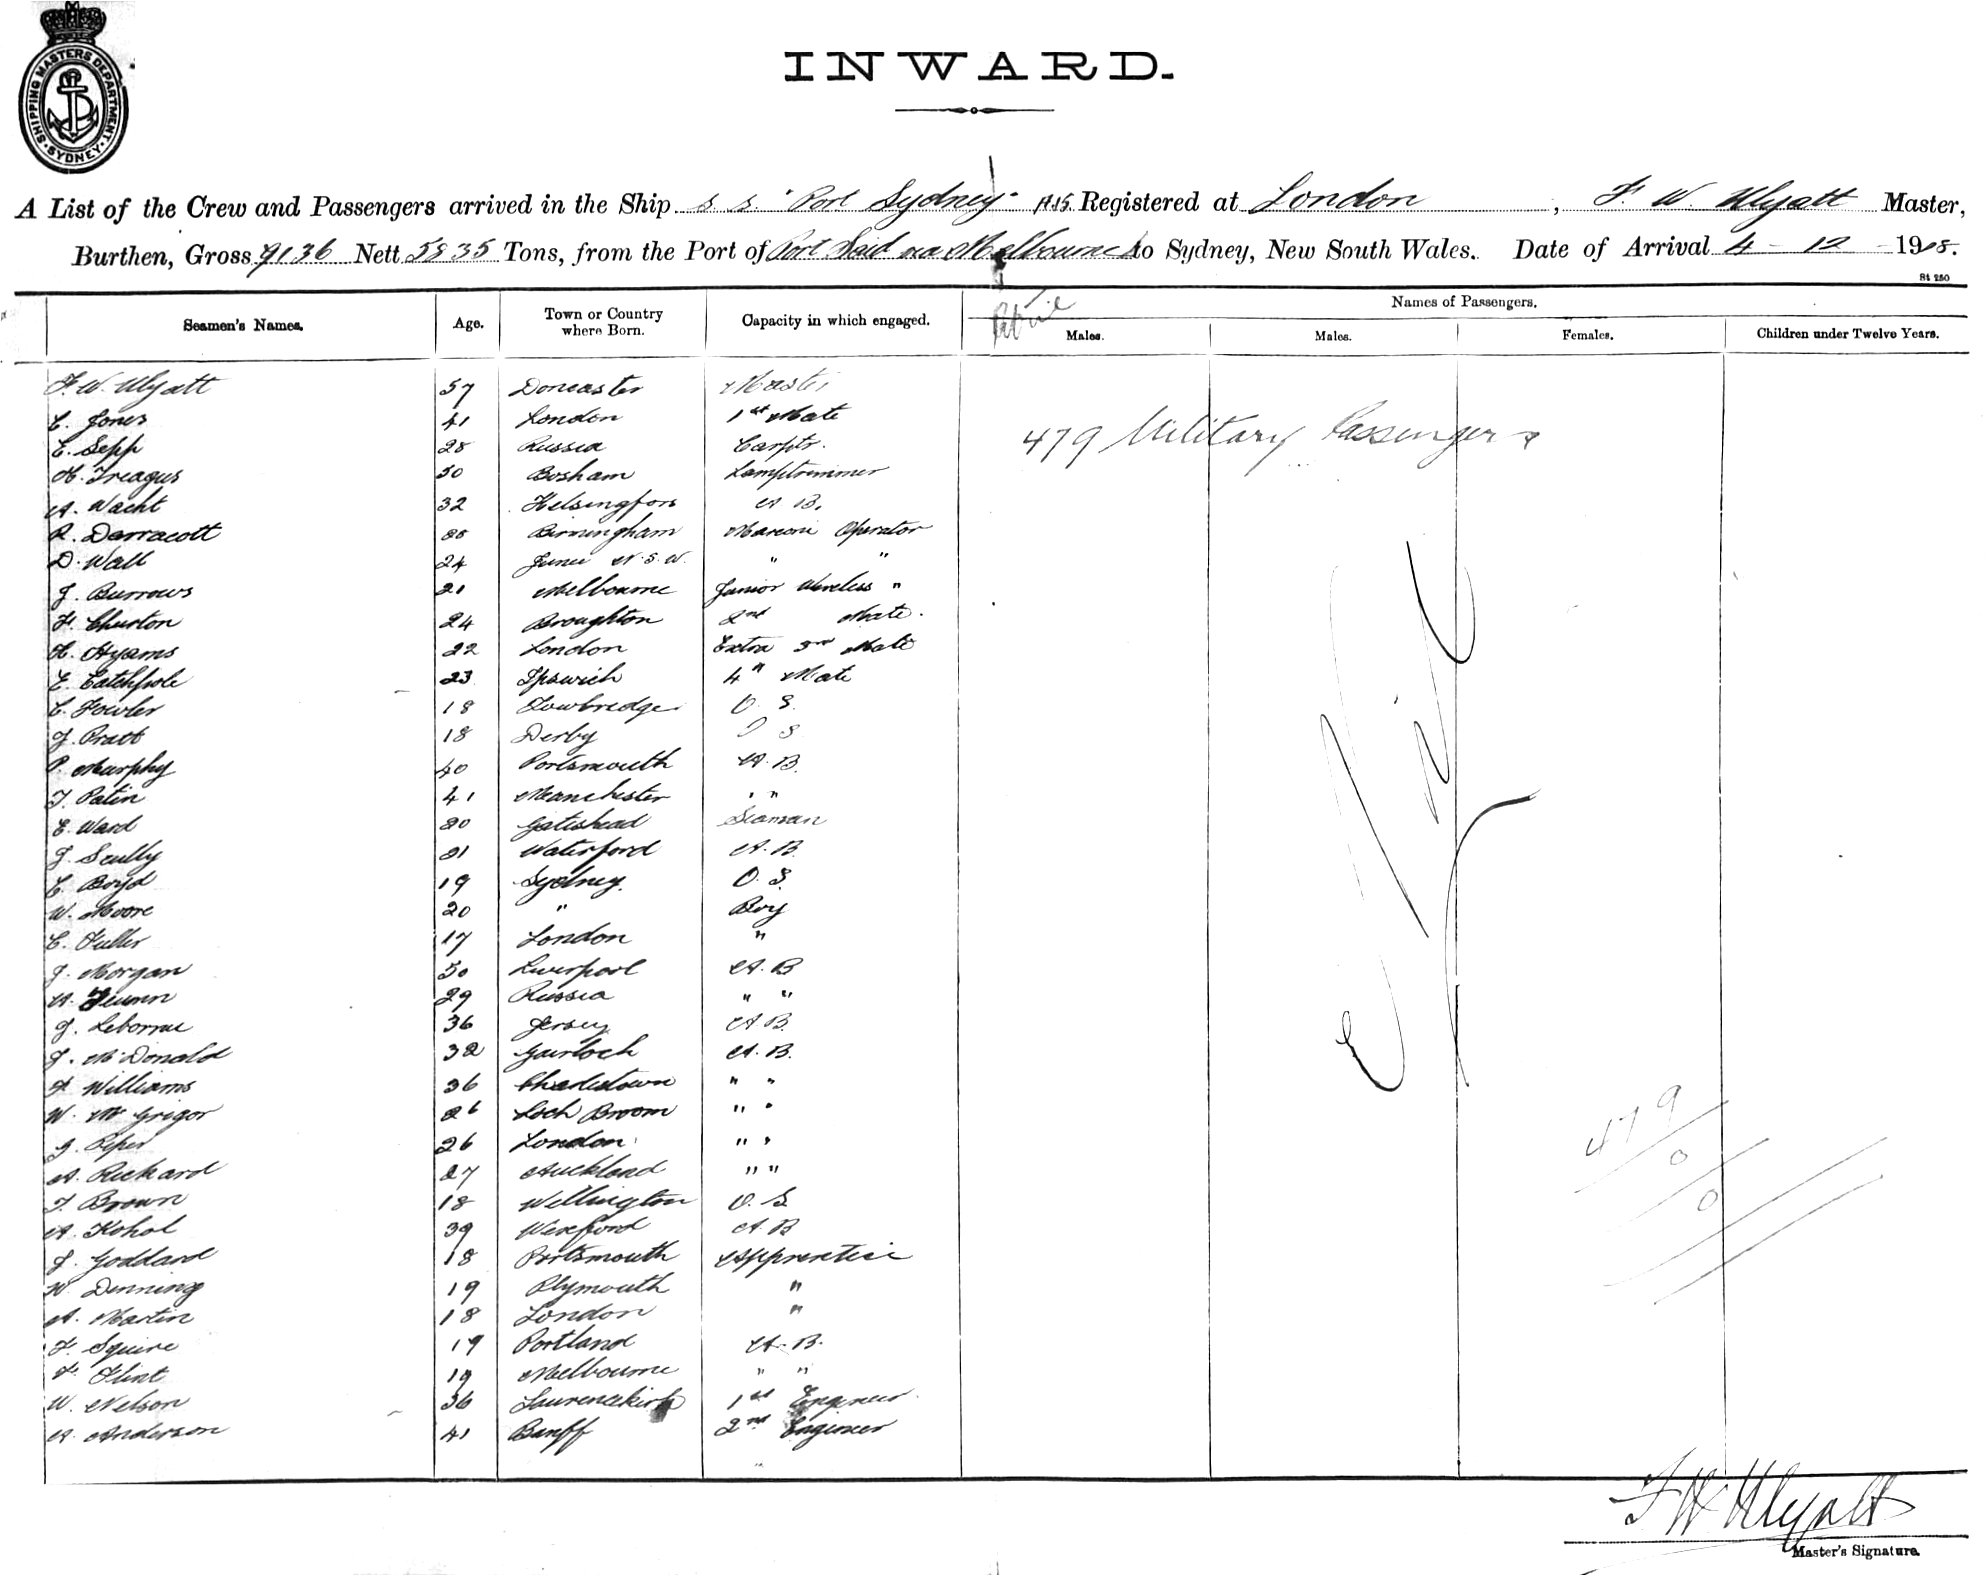 SHIPPING MASTERS DEPARTMENT · SYDNEY ·
INWARD.
A List of the Crew and Passengers arrived in the Ship S. S. "Port Sydney" Registered at London, F. W. Wyatt Master,
Burthen, Gross 9136 Nett 5835 Tons, from the Port of Port Said via Melbourne to Sydney, New South Wales. Date of Arrival 4 - 12 - 1918.
St 250
Seamen's Names. Age. Town or Country where Born. Capacity in which engaged. Names of Passengers.
Males. Males. Females. Children under Twelve Years.
F. W. Wyatt 57 Doncaster Master
C. Jones 41 London 1st Mate
E. Sepp 28 Russia Carptr.
H. Treagus 50 Bosham Lamptrimmer
A. Wacht 32 Helsingfors A B.
R. Darracott Birmingham Marconi Operator
D. Wall 24 Junee N. S. W. " "
J. Burrows 21 Melbourne Junior Wireless "
F. Churton 24 Broughton 2nd Mate.
H. Hyams 22 London Extra 3rd Mate
E. Catchpole 23 Ipswich 4" Mate
C. Fowler 18 Towbridge O. S.
J. Pratt 18 Derby O S
P. Murphy 40 Portsmouth A. B.
T. Patin 41 Manchester " "
E. Ward 20 Gateshead Seaman
J. Scully 21 Waterford A. B.
C. Boyd 19 Sydney. O. S.
W. Moore 20 " Boy
C. Fuller 17 London "
J. Morgan 50 Liverpool A. B
A. 29 Russia " "
J. 36 Jersey A. B.
J. McDonald 32 Gairloch A. B.
Williams 36 Charlestown " "
W. McGrigor 26 Loch Broom " "
J. Piper 26 London " "
A. Rickard 27 Auckland " "
T. Brown 18 Wellington O. S
A. Kohol 39 Wexford A. B
J. Goddard 18 Portsmouth Apprentice
W. Denning 19 Plymouth "
A. Martin 18 London "
F. Squire 19 Portland A. B.
F. Flint 19 Melbourne " "
W. Nelson 36 Laurencekirk 1st Engineer
A. Anderson 41 Banff 2nd Engineer
479 Military Passengers
479
0
0
F W Wyatt
Master's Signature.